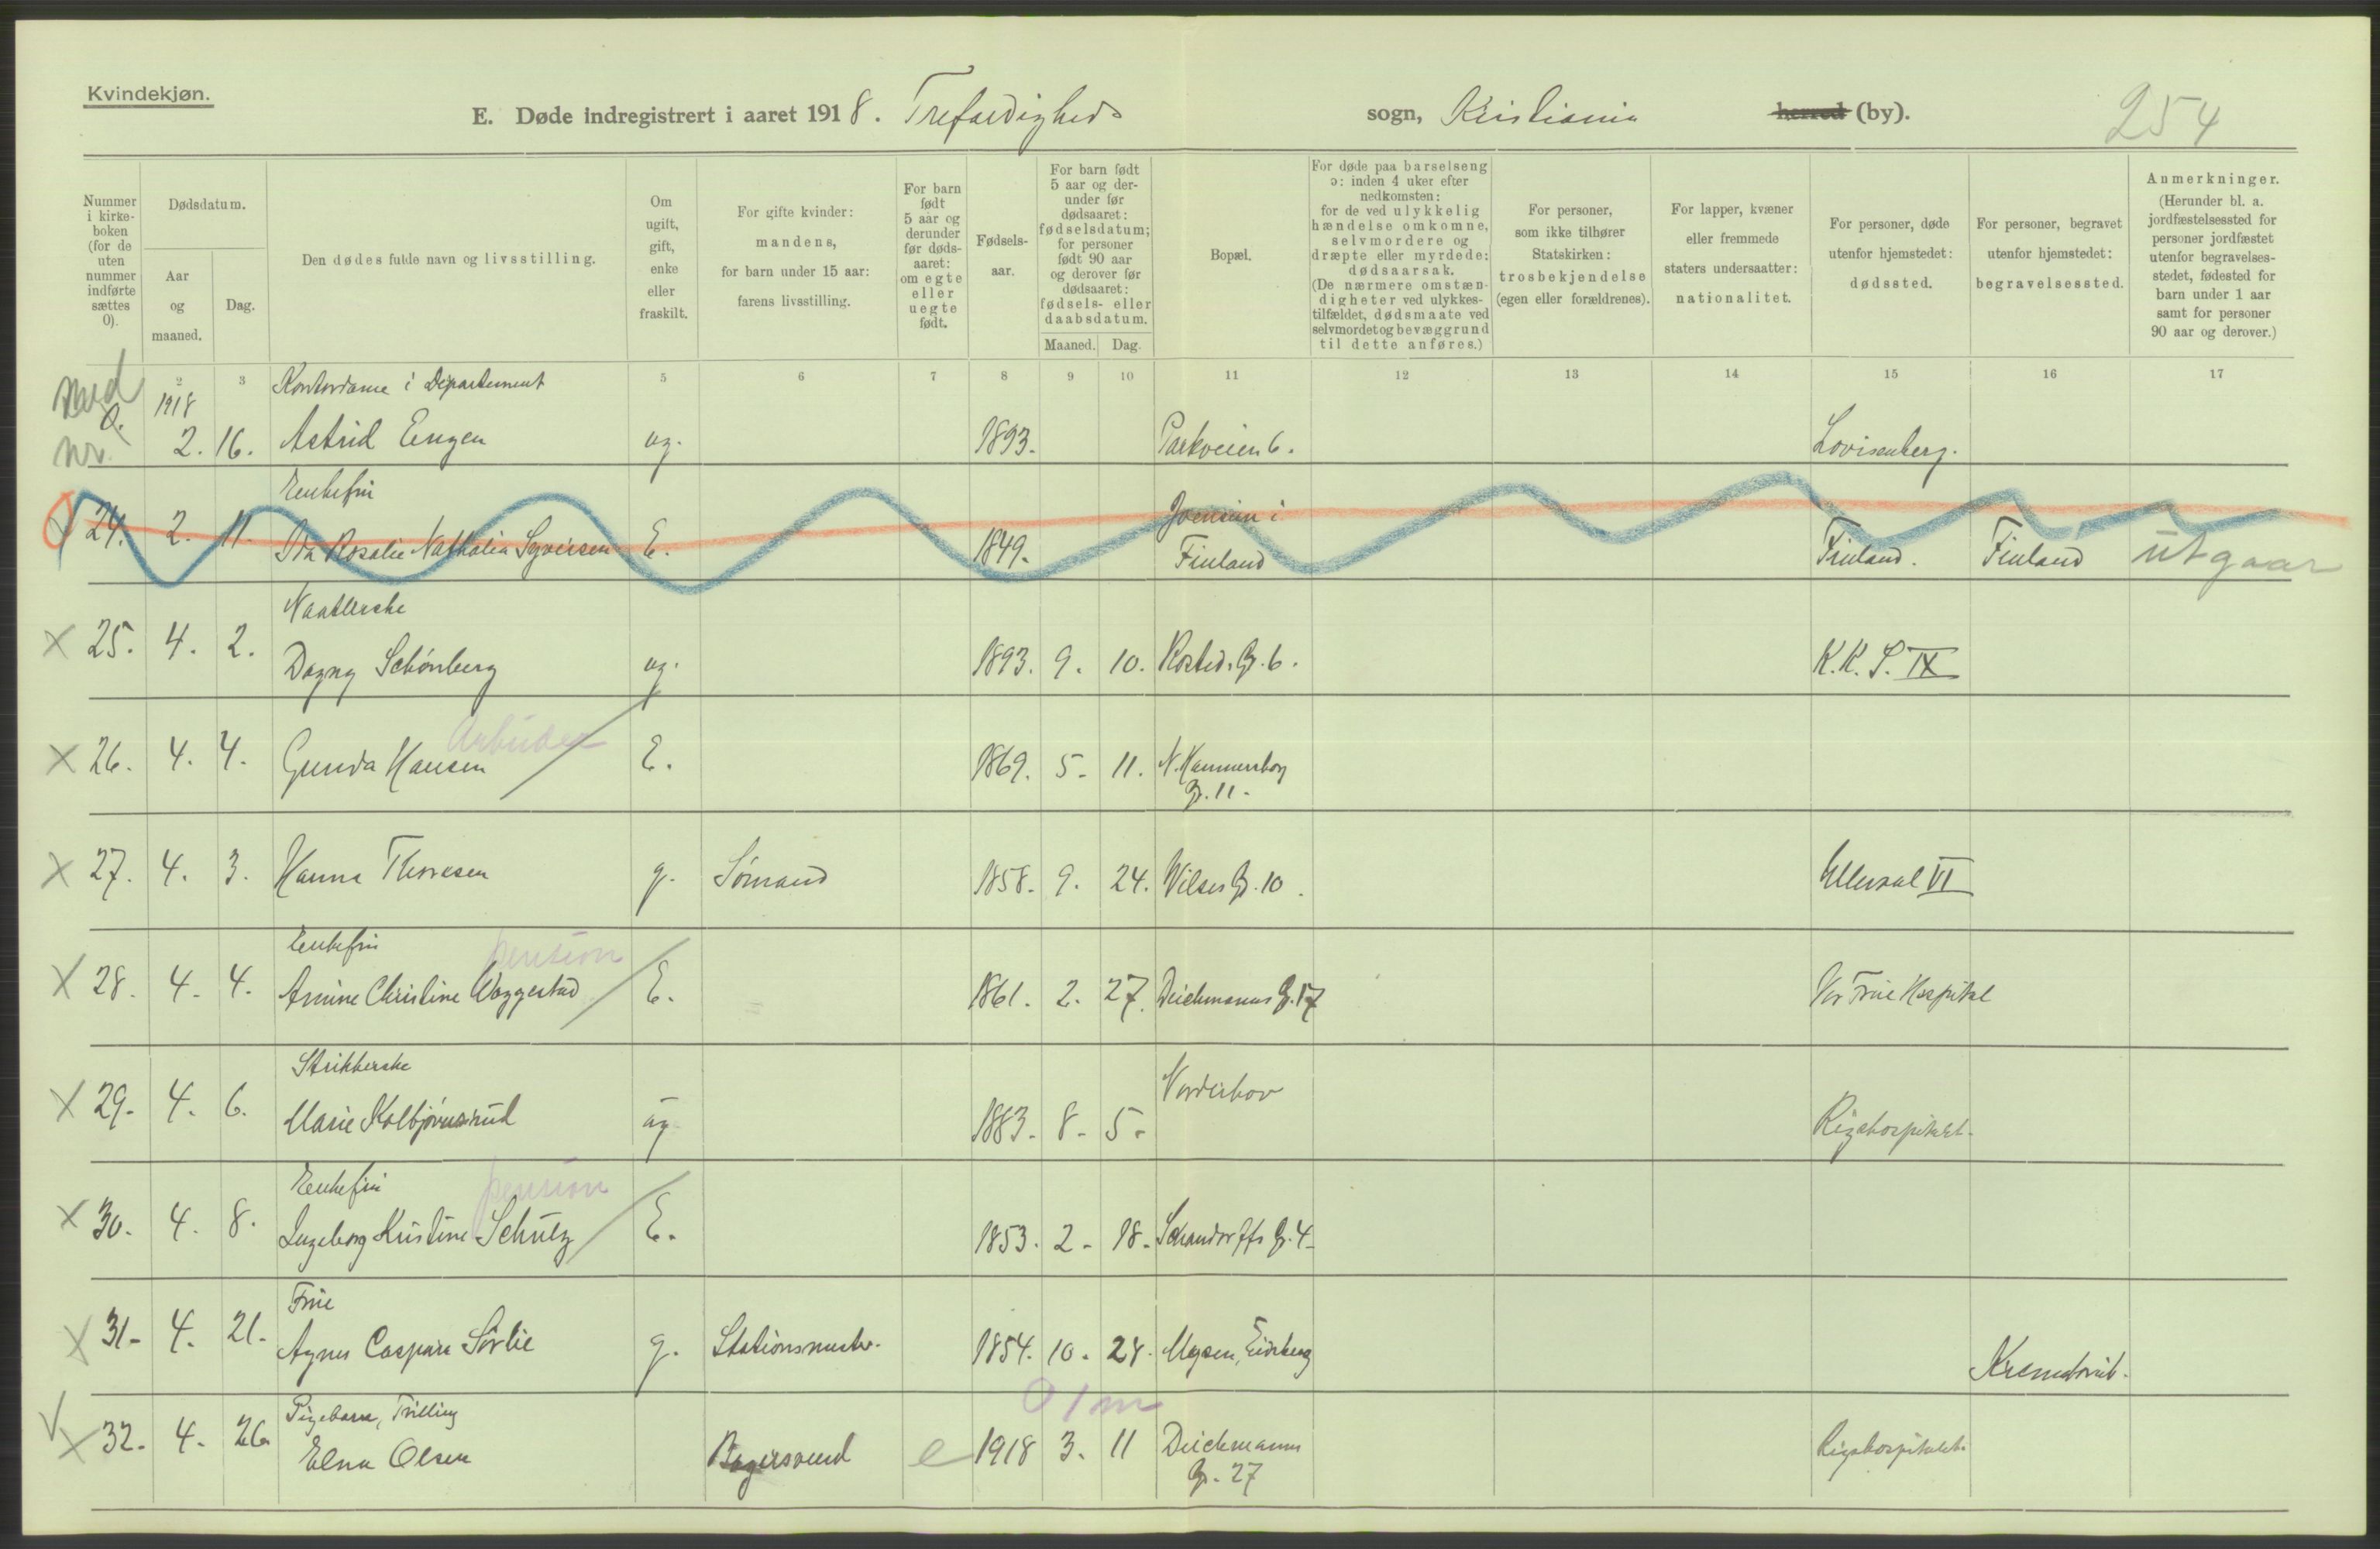 Kvindekjøn.
E. Døde indregistrert i aaret 1918. Trefoldigheds sogn, Kristiania herred (by).
254
Nummer i kirkeboken (for de uten nummer indførte sættes 0).
Dødsdatum.
Aar og maaned.
Dag.
Den dødes fulde navn og livsstilling.
Om ugift, gift, enke eller fraskilt.
For gifte kvinder: mandens, for barn under 15 aar: farens livsstilling.
For barn født 5 aar og derunder før dødsaaret: om egte eller uegte født.
Fødselsaar.
For barn født 5 aar og derunder før dødsaaret: fødselsdatum; for personer født 90 aar og derover før dødsaaret: fødsels- eller daabsdatum.
Maaned. Dag.
Bopæl.
For døde paa barselseng ɔ: inden 4 uker efter nedkomsten: for de ved ulykkelig hændelse omkomne, selvmordere og dræpte eller myrdede: dødsaarsak. (De nærmere omstændigheter ved ulykkestilfældet, dødsmaate ved selvmordet og bevæggrund til dette anføres.)
For personer, som ikke tilhører Statskirken: trosbekjendelse (egen eller forældrenes).
For lapper, kvæner eller fremmede staters undersaatter: nationalitet.
For personer, døde utenfor hjemstedet: dødssted.
For personer, begravet utenfor hjemstedet: begravelsessted.
Anmerkninger. (Herunder bl. a. jordfæstelsessted for personer jordfæstet utenfor begravelsesstedet, fødested for barn under 1 aar samt for personer 90 aar og derover.)
2 3 5 6 7 8 9 10 11 12 13 14 15 16 17
Kontordame i Departement
1918
nr. 0. 2. 16. Astrid Engen ug. 1893. Parkveien 6. Lovisenberg.
Enkefru
24. 2. 11. Ida Rosalie Nathalia Syversen E. 1849. Finland Finland. Finland utgaar
Naatlerske
X 25. 4. 2. Dagny Schönberg ug. 1893. 9. 10. Rosteds G. 6. K.K.S. IX
Arbeider
X 26. 4. 4. Gunda Hansen E. 1869. 5. 11. N. Hammersborg
G. 11.
X 27. 4. 3. Hanna Thoresen g. Sømand 1858. 9. 24. Wilses G. 10. Ulleval VI
Enkefru pension
X 28. 4. 4. Amine Christine Waggestad E. 1861. 2. 27. Deichmanns G. 17 Vor Frue Hospital
Strikkerske
X 29. 4. 6. Marie Kolbjørnsrud ug 1883. 8. 5. Norderhov Rigshospitalet.
Enkefru pension
X 30. 4. 8. Ingeborg Kristine Schulz E. 1853. 2. 18. Schandorffs G. 4
Frue
X 31. 4. 21. Agnes Caspara Sörlie g. Stationsmester. 1854. 10. 28. Mysen, Eidsberg Krematoriet.
0 1 m
Pigebarn, Trilling
X 32. 4. 26. Elna Olsen Bagersvend e 1918 3. 11 Deichmanns
G. 27 Rigshospitalet.